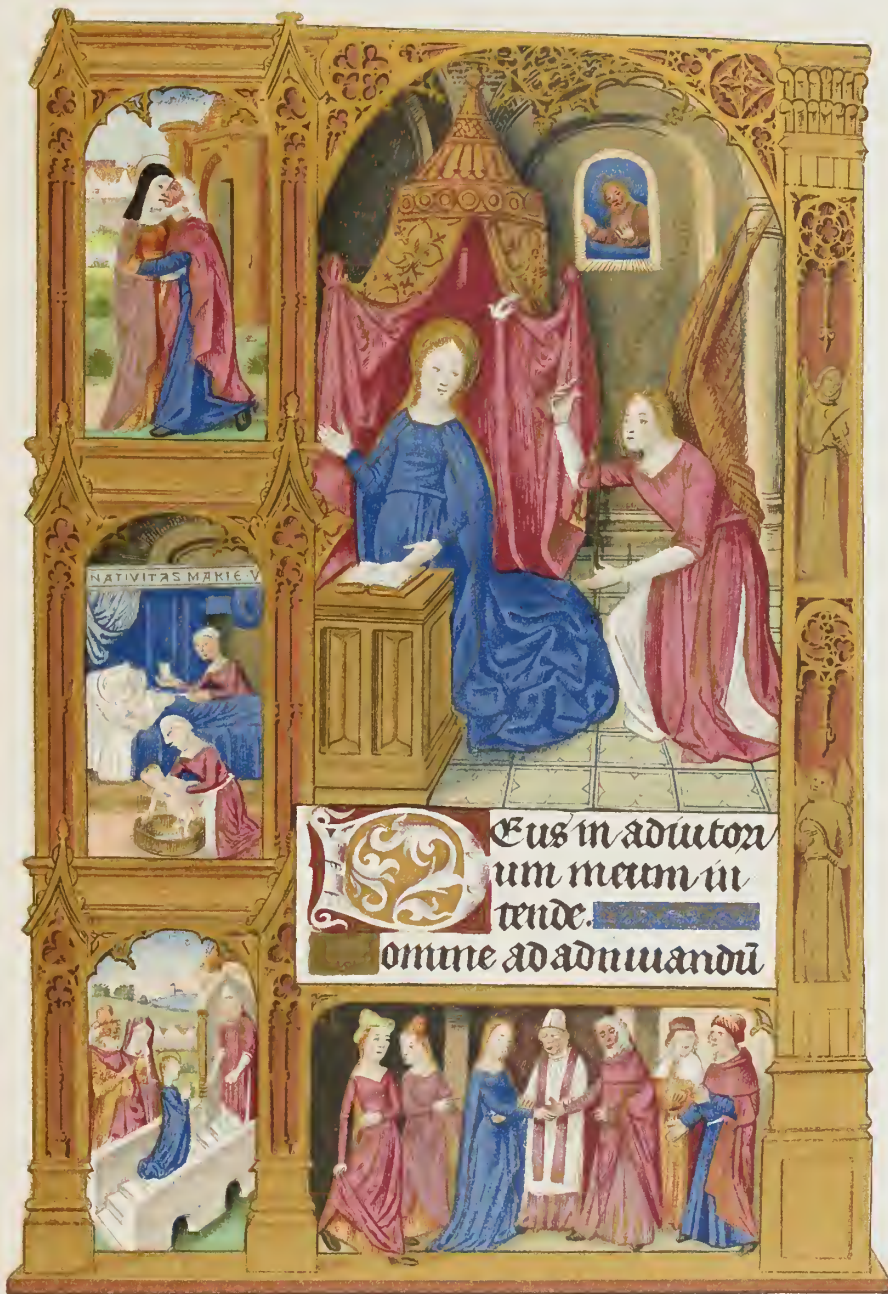 NATIVITAS MARIE V
Deus in adiutori
um meum in
tende.
Domine ad adiuuandū